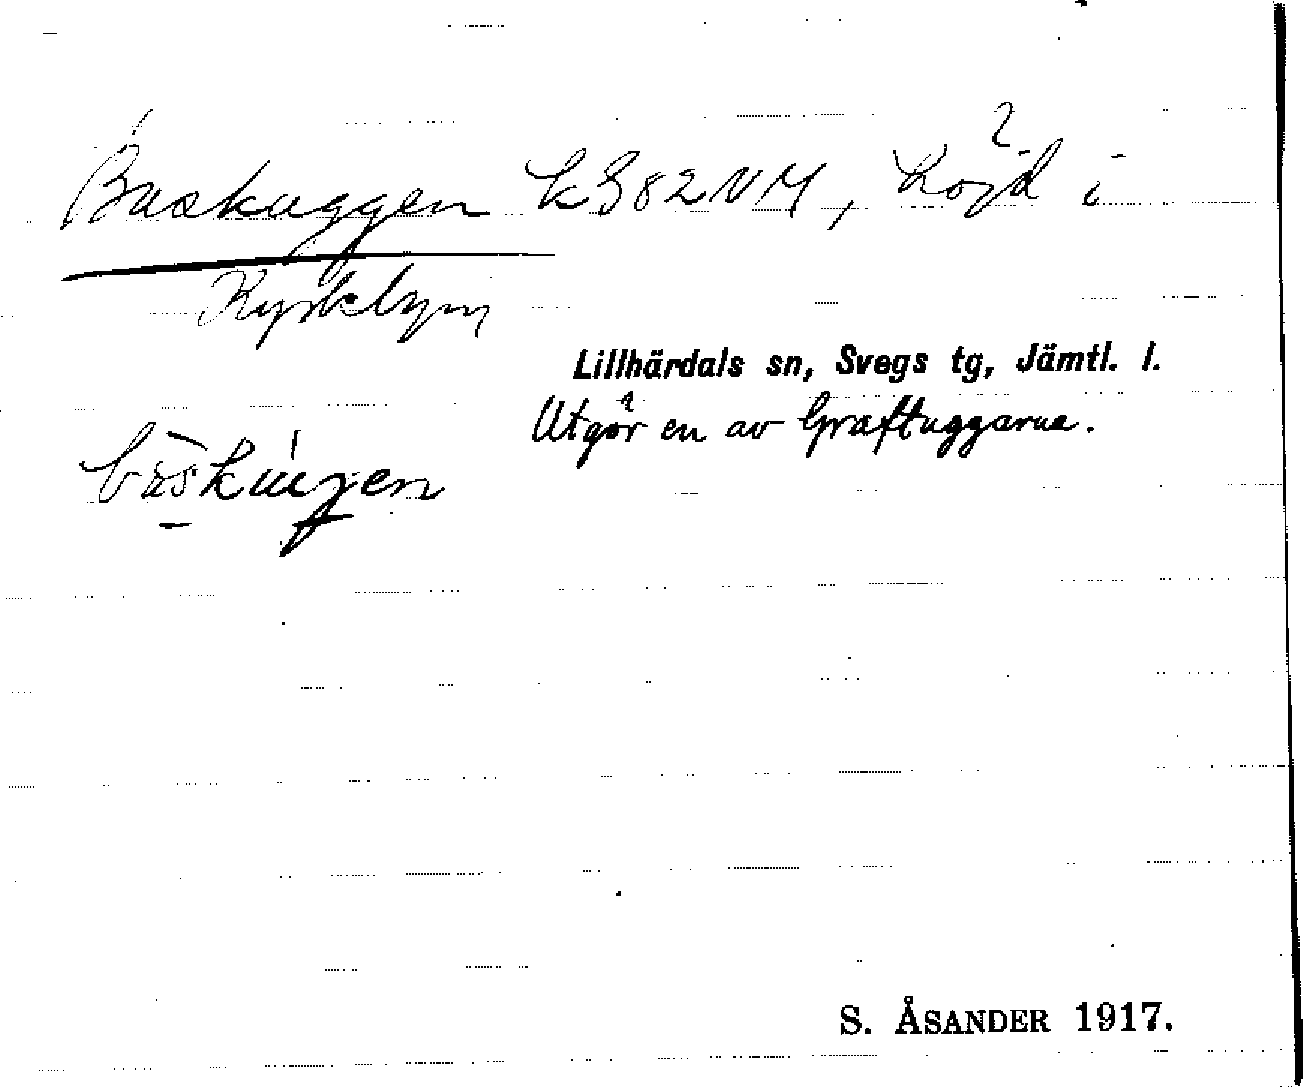 Buskuggen k382NM, höjd i
Kyrkbyn
Lillhärdals sn, Svegs tg, Jämtl. l.
Utgör en av Graftuggarna.
S. ÅSANDER 1917.